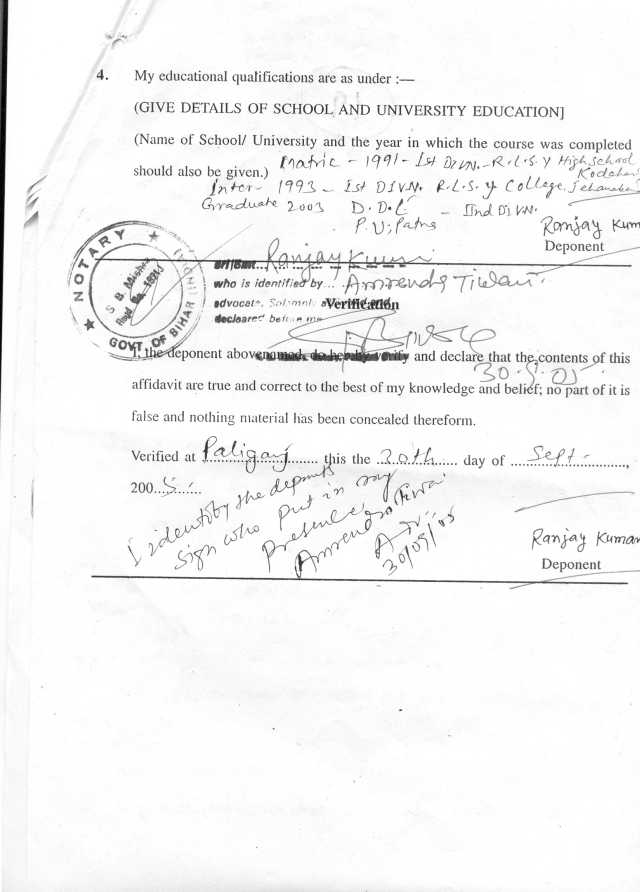 4. My educational qualifications are as under :—
(GIVE DETAILS OF SCHOOL AND UNIVERSITY EDUCATION]
(Name of School/ University and the year in which the course was completed
should also be given.) Matric - 1991 - Ist DIVN. - R.L.S.Y High School
Inter - 1993 - Ist DIVN. R.L.S.Y College,
Graduate 2003 D.D.E - IInd DIVN.
P.U. Patna
Ranjay Kum
Deponent
NOTARY
S. B. Mishra
GOVT. OF BIHAR
Ranjay Kumar
who is identified by... Amrendra Tiwari
advocate, Solemnly
Verification
decleared before me
30.9.05
I, the deponent above named, do hereby verify and declare that the contents of this
affidavit are true and correct to the best of my knowledge and belief; no part of it is
false and nothing material has been concealed thereform.
Verified at Paliganj this the 30th day of Sept.,
2005
I identify the deponent's
sign who put in my
presence.
Amrendra Tiwari
30/09/05
Ranjay Kumar
Deponent